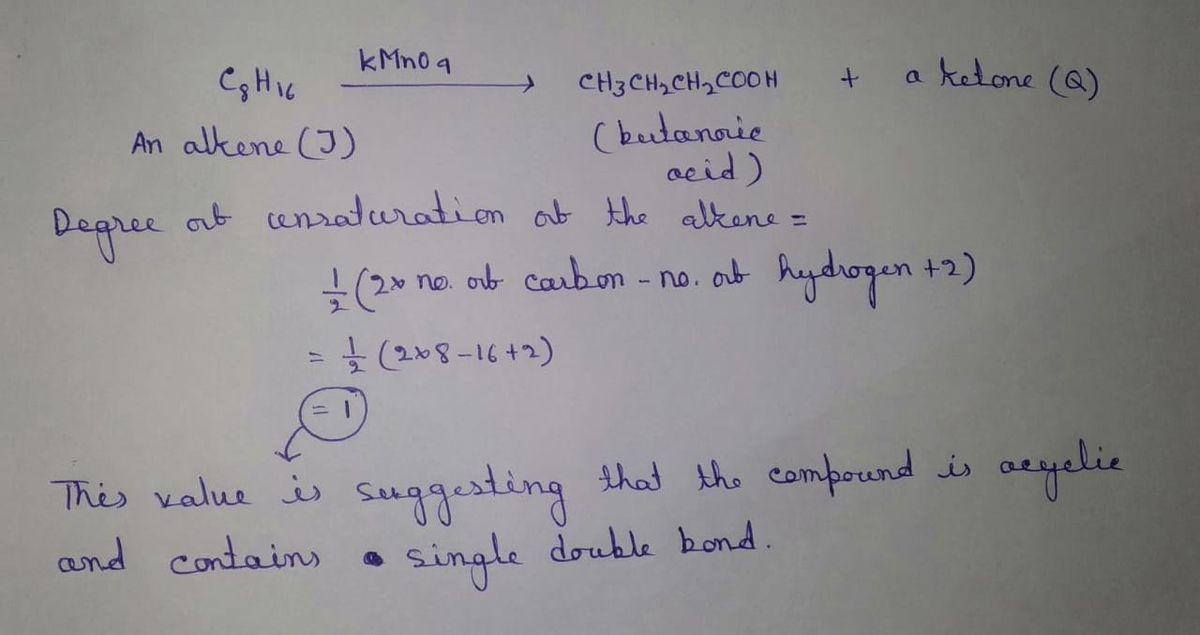 C₈H₁₆ —KMnO₄→ CH₃CH₂CH₂COOH + a ketone (Q)
An alkene (J) (butanoic
acid)
Degree of unsaturation of the alkene =
½ (2× no. of carbon - no. of hydrogen +2)
= ½ (2×8-16+2)
= 1
This value is suggesting that the compound is acyclic
and contains single double bond.